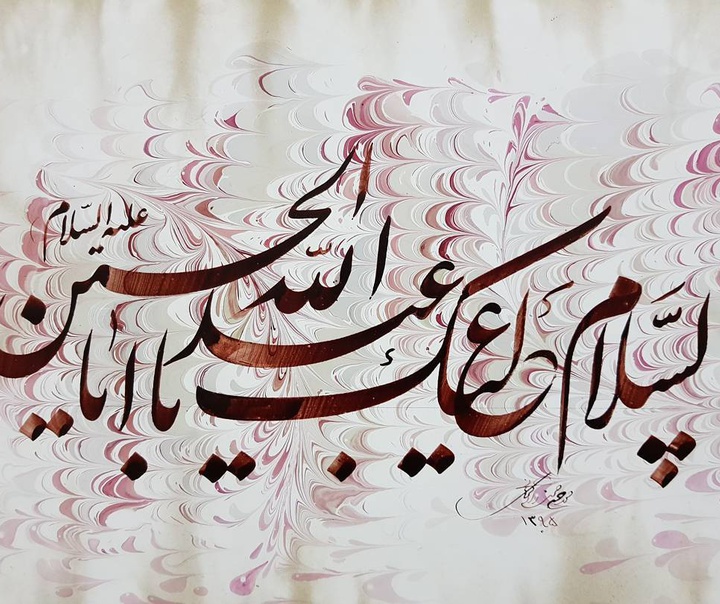 السّلام علیک یا ابا عبد الله الحسین
علیه السّلام
۱۳۹۵